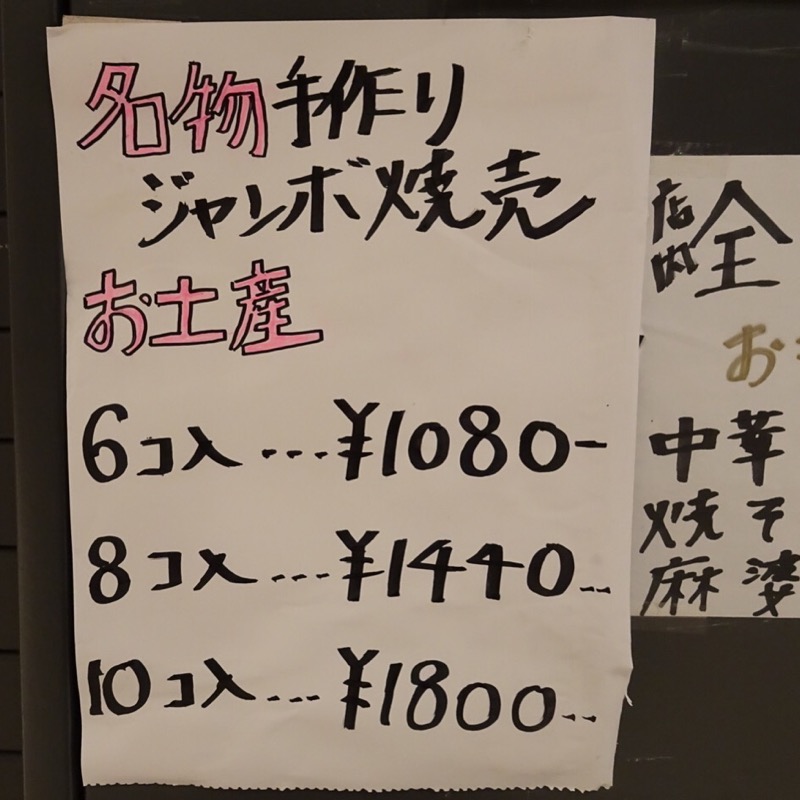 名物手作り
ジャンボ焼売
お土産
6コ入…¥1080-
8コ入…¥1440-
10コ入…¥1800-
店内全
お
中華
焼そ
麻婆